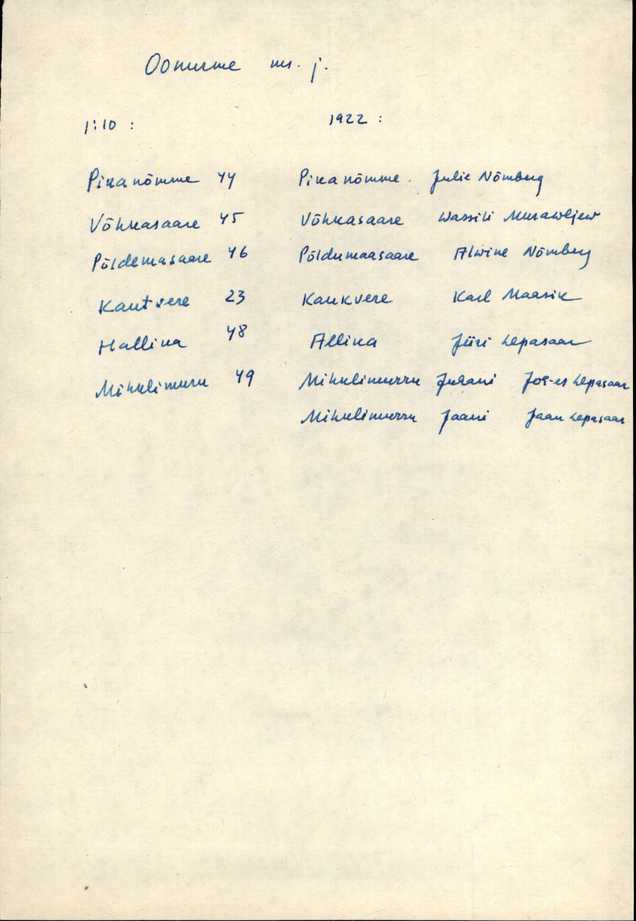 Oonurme ms. j.
1:10 : 1922 :
Pikanõmme 44 Pikanõmme. Julie Nõmberg
Võhkasaare 45 Võhkasaare Wassili Murawljew
Põldemasaare 46 Põldumaasaare Alwine Nõmberg
Kautvere 23 Kaukvere Karl Maasik
Hallika 48 Allika Jüri Lepasaar
Mihklimuru 49 Mihklimurru Juhani Lepasaar
Mihklimurru Jaani Jaan Lepasaar